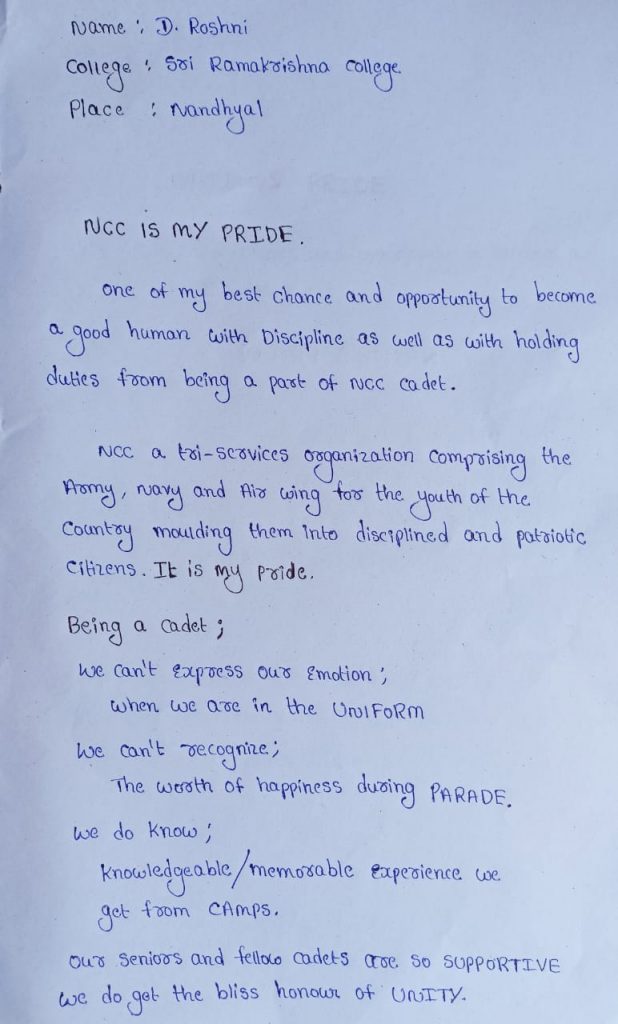 Name : D. Roshni
College : Sri Ramakrishna college
Place : Nandhyal
NCC IS MY PRIDE.
One of my best chance and opportunity to become
a good human with Discipline as well as with holding
duties from being a part of NCC cadet.
NCC a tri-services organization comprising the
Army, Navy and Air wing for the youth of the
Country moulding them into disciplined and patriotic
Citizens. It is my pride.
Being a cadet ;
We can't Express our Emotion ;
when we are in the UNIFORM
We can't recognize;
The worth of happiness during PARADE.
We do know ;
knowledgeable/memorable Experience we
get from CAMPS.
Our seniors and fellow cadets are so SUPPORTIVE
we do get the bliss honour of UNITY.